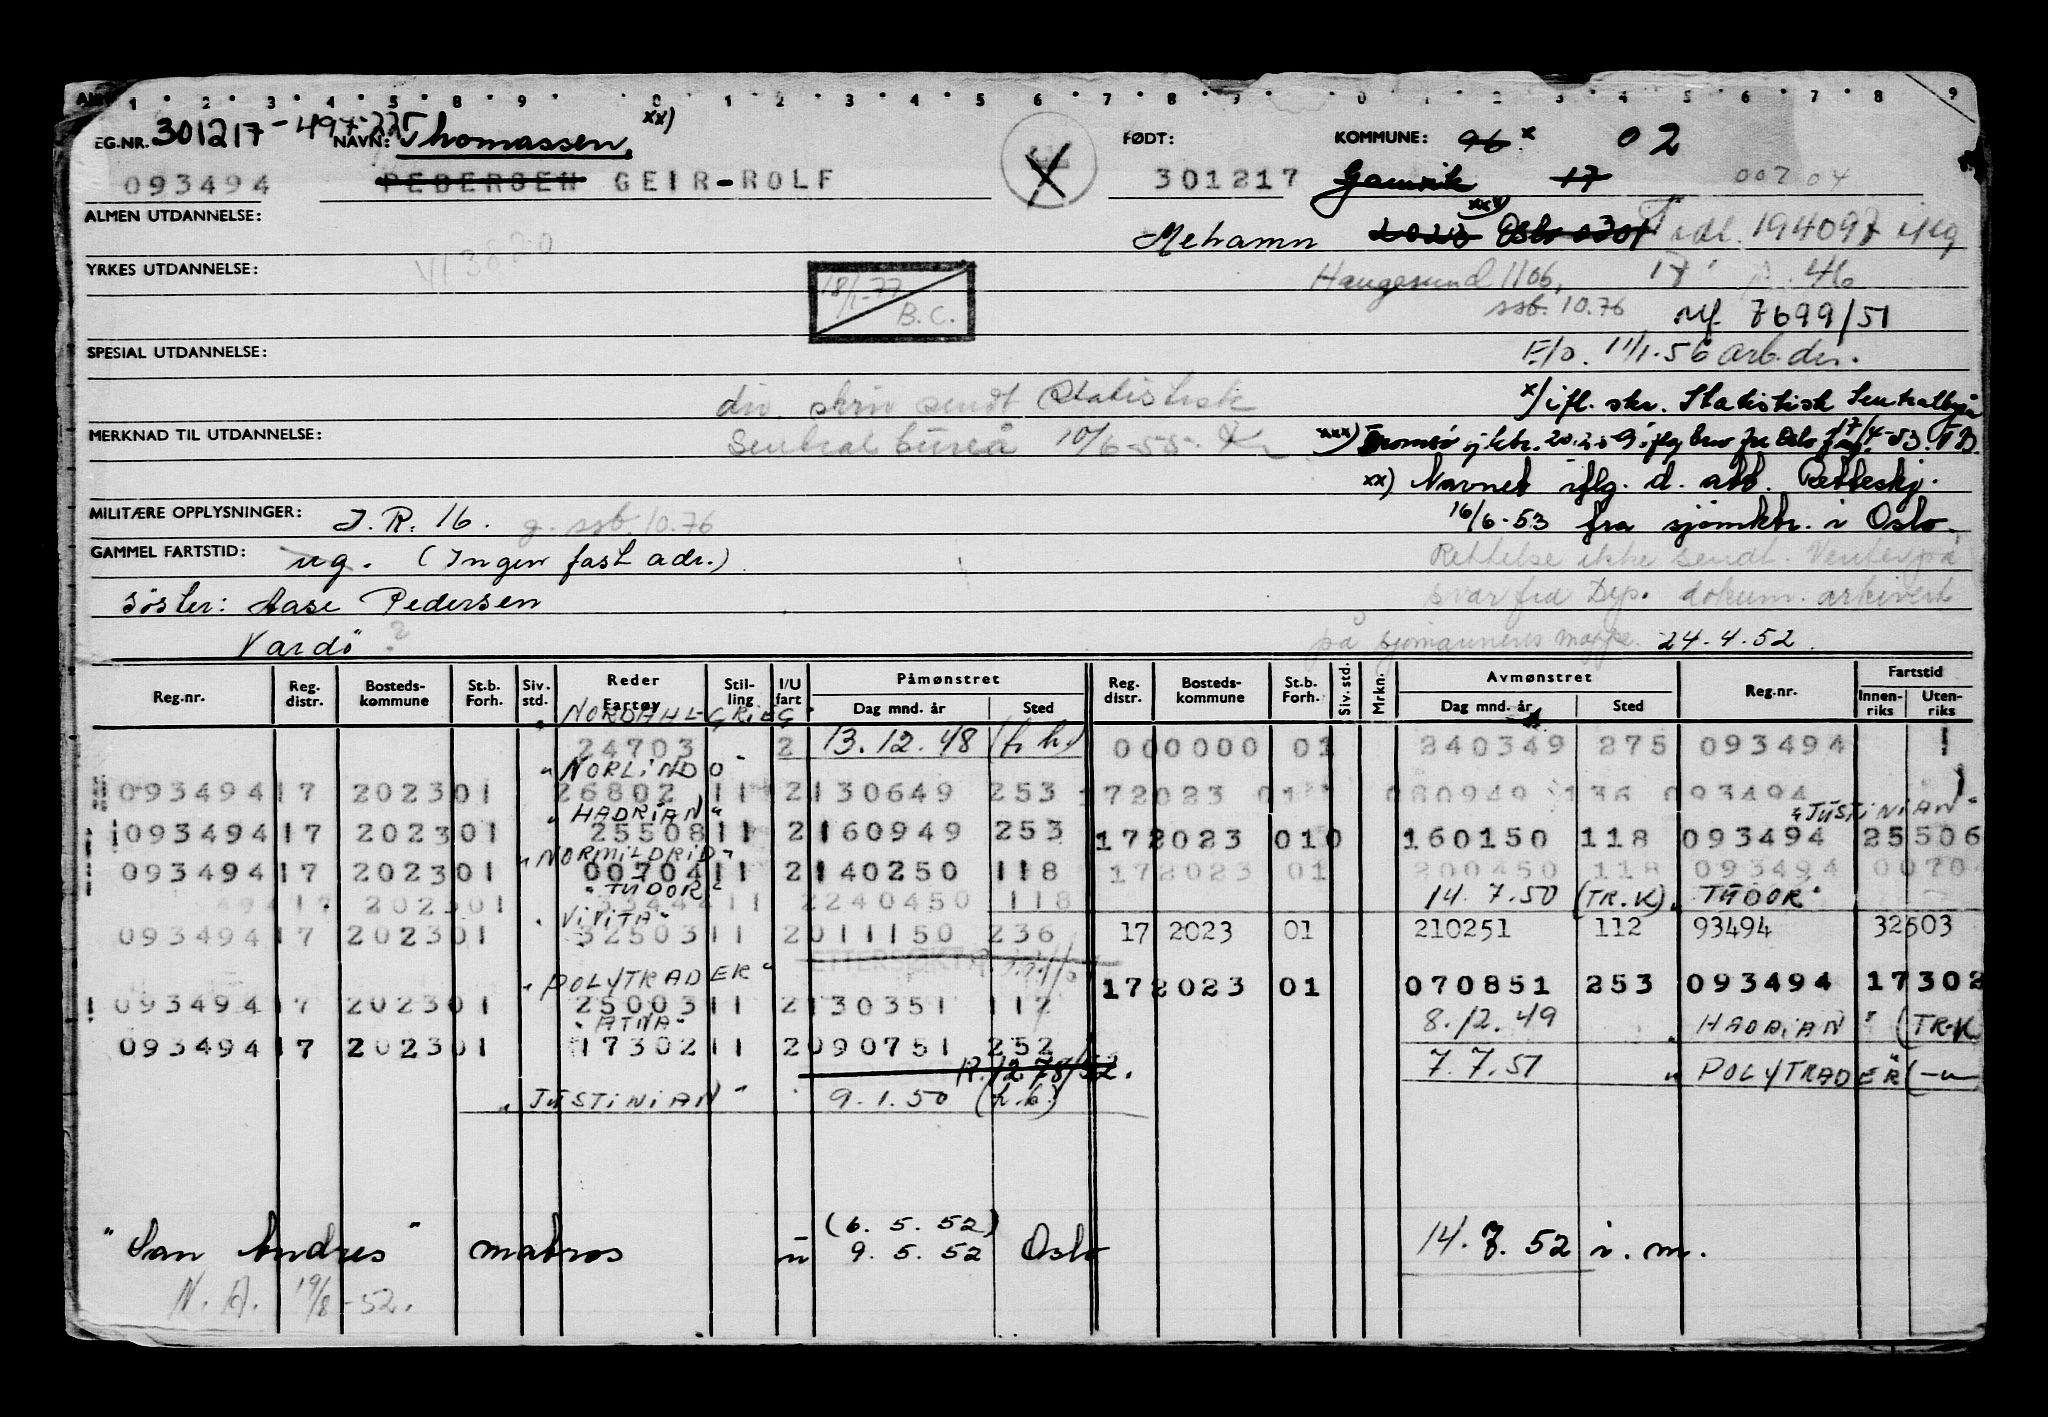 EG.NR. 301217-497-225 NAVN: Thomassen, xx) FØDT: KOMMUNE: 96 x 02
093494 PEDERSEN GEIR-ROLF 301217 Gamvik 17 007 04
ALMEN UTDANNELSE: Mehamn 2023 xxx) Oslo 0301
YRKES UTDANNELSE: 18/1-77 B.C. Haugesund 1106, 17 46
ssb. 10.76 7699/51
SPESIAL UTDANNELSE: F/o. 11/1-56 Arb.dir.
div. skriv sendt Statistisk x/ ifl. skr. Statistisk Sentralbyrå
MERKNAD TIL UTDANNELSE: Sentral bureå 10/6-55. xxx) Tromsø
xx) Navnet iflg. d. att. Retteskj.
MILITÆRE OPPLYSNINGER: I.R. 16. g. ssb. 10.76 16/6-53 fra sjømktr. i Oslo.
GAMMEL FARTSTID: ug. (Ingen fast adr.) Rettelse ikke sendt. Venter på
søster: Aase Pedersen svar fra Dep. dokum. arkivert
Vardö ? på sjømannens mappe. 24.4.52.
Reg.nr. Reg. distr. Bosteds-kommune St.b. Forh. Siv. std. Reder Fartøy Stil-ling I/U fart Påmønstret Dag mnd. år Sted Reg. distr. Bosteds-kommune St.b. Forh. Siv. std. Mrkn. Avmønstret Dag mnd. år Sted Reg.nr. Fartstid Innen-riks Uten-riks
"NORDAHL-GRIEG"
24703 2 13.12.48 (fr.h.) 000000 01 240349 275 093494
"NORLINDO"
093494 17 2023 01 26802 11 2 130649 253 17 2023 01 080949 136 093494
"HADRIAN" "JUSTINIAN"
093494 17 2023 01 25508 11 2 160949 253 17 2023 010 160150 118 093494 25506
"NORMILDRID"
093494 17 2023 01 00704 11 2 140250 118 17 2023 01 200450 118 093494 00704
"TUDOR" 14.7.50 (TR.K) "TUDOR"
49417 2023 01 33444 11 2 240450 118
"VIVITA"
093494 17 2023 01 32503 11 2 011150 236 17 2023 01 210251 112 93494 32503
ETTERSØKT
"POLYTRADER" 17 2023 01 070851 253 093494 17302
093494 17 2023 01 25003 11 2 130351 112
"ATNA" 8.12.49 "HADRIAN" (TR-K
093494 17 2023 01 17302 11 2 090751 252
R.1278/52. 7.7.51 "POLYTRADER" (-"-
"JUSTINIAN" 9.1.50 (fr.h.)
(6.5.52)
"San Andres" matros u 9.5.52 Oslo 14.7.52 i.m.
N.A. 19/8-52.